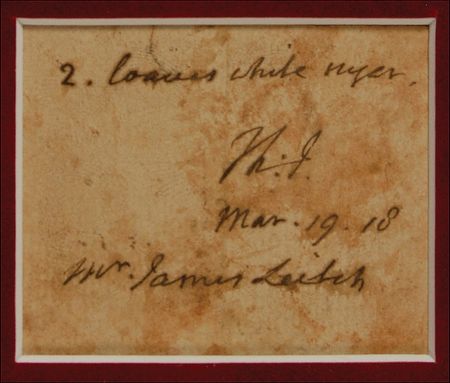 2. loaves white sugar.
Th:J.
Mar. 19. 18
Mr. James Leitch